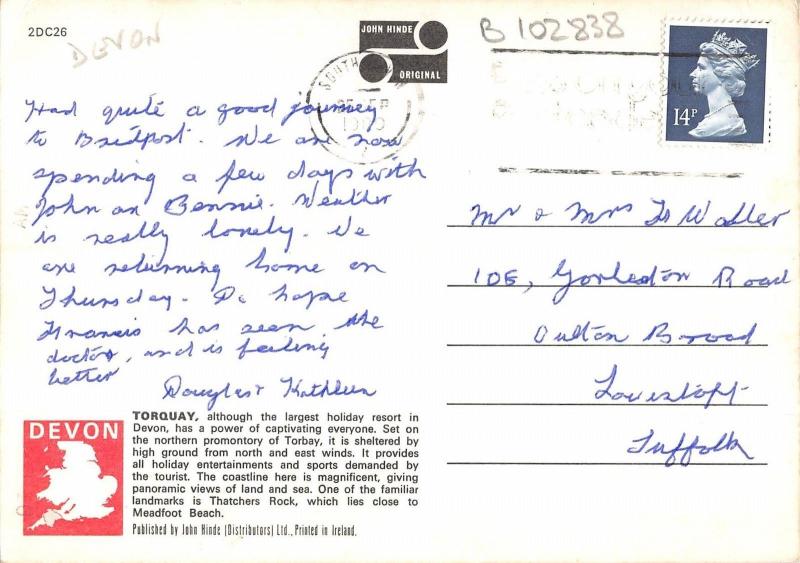 2DC26
DEVON
JOHN HINDE
ORIGINAL
B 102838
SOUTH
14P
Had quite a good journey
to Bridport. We are now
spending a few days with
John an Bennie. Weather
is really lovely. We
are returning home on
Thursday. Do hope
Francis has seen the
doctor, and is feeling
better
Douglas & Kathleen
Mr & Mrs F Waller
105, Gorleston Road
Oulton Broad
Lowestoft
Suffolk
DEVON
TORQUAY, although the largest holiday resort in
Devon, has a power of captivating everyone. Set on
the northern promontory of Torbay, it is sheltered by
high ground from north and east winds. It provides
all holiday entertainments and sports demanded by
the tourist. The coastline here is magnificent, giving
panoramic views of land and sea. One of the familiar
landmarks is Thatchers Rock, which lies close to
Meadfoot Beach.
Published by John Hinde (Distributors) Ltd., Printed in Ireland.